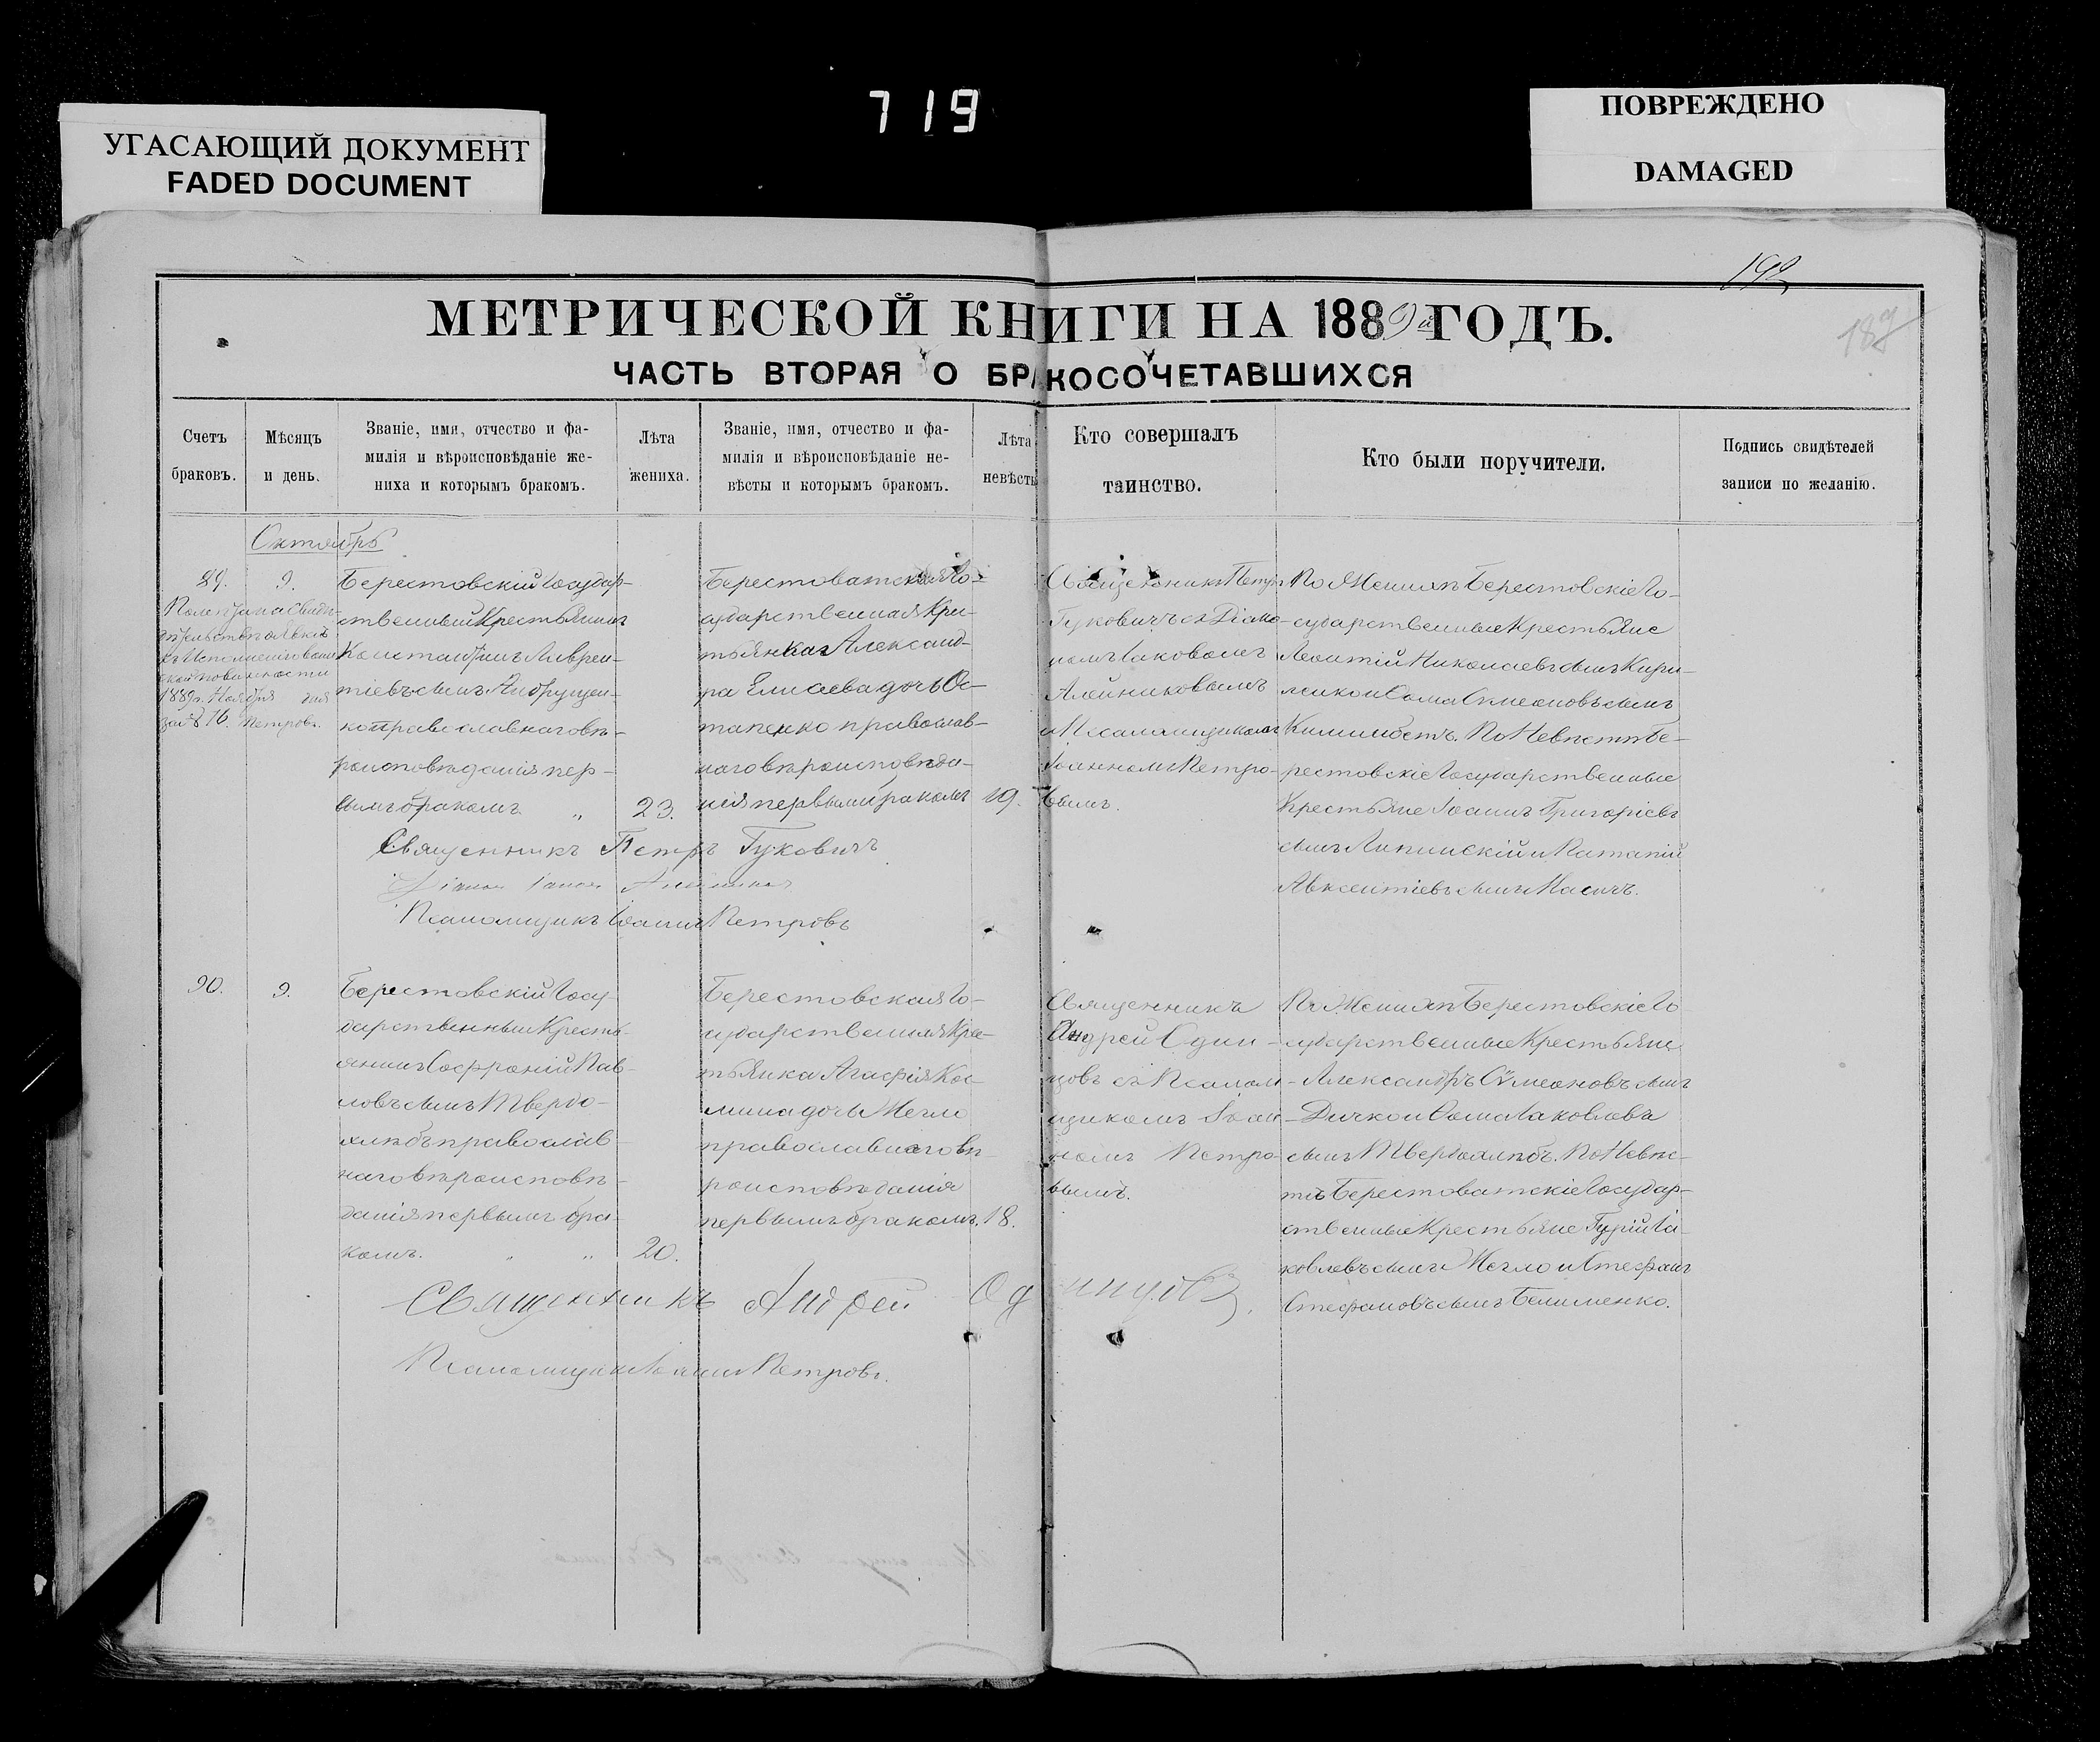 УГАСАЮЩИЙ ДОКУМЕНТ
FADED DOCUMENT
719
ПОВРЕЖДЕНО
DAMAGED
192
189
МЕТРИЧЕСКОЙ КНИГИ НА 1889й ГОДЪ.
ЧАСТЬ ВТОРАЯ О БРАКОСОЧЕТАВШИХСЯ
Счетъ
браковъ.
Мѣсяцъ
и день.
Званіе, имя, отчество и фа-
милія и вѣроисповѣданіе же-
ниха и которымъ бракомъ.
Лѣта
жениха.
Званіе, имя, отчество и фа-
милія и вѣроисповѣданіе не-
вѣсты и которымъ бракомъ.
Лѣта
невѣсты
Кто совершалъ
таинство.
Кто были поручители.
Подпись свидѣтелей
записи по желанію.
Октябрь
89.
9.
1889 г. Ноября дня
за № 16. Петровъ.
Берестовскій Государ-
ственный Крестьянинъ
Константинъ Лаврен-
тіевъ сынъ Андрущен-
ко православнаго вѣ-
роисповѣданія пер-
вымъ бракомъ. „
23.
Берестоватская Го-
сударственная Кре-
стьянка Александ-
ра Елисеева дочь Ос-
тапенко православ-
наго вѣроисповѣда-
нія первымъ бракомъ
19.
Священникъ Петръ
Гуковичъ съ Діако-
номъ Іаковомъ
Алейниковымъ
и Псаломщикомъ
Іоанномъ Петро-
вымъ.
По Женихѣ Берестовскіе Го-
сударственные Крестьяне
Леонтій Николаевъ сынъ Кири-
ленко и Ѳома Симеоновъ сынъ
По Невѣстѣ Бе-
рестовскіе Государственные
Крестьяне Іоаннъ Григоріевъ
сынъ Липинскій и Патапій
Авксентіевъ сынъ Масичъ.
Священникъ Петръ Гуковичъ
Діаконъ Іаковъ Алейниковъ
Псаломщикъ Іоаннъ Петровъ
90.
9.
Берестовскій Госу-
дарственный Кресть-
янинъ Софроній Пав-
ловъ сынъ Твердо-
хлѣбъ православ-
наго вѣроисповѣ-
данія первымъ бра-
комъ. „ „
20.
Берестовская Го-
сударственная Кре-
стьянка Агафія Кос-
мина дочь Жегло
православнаго вѣ-
роисповѣданія
первымъ бракомъ.
18.
Священникъ
Андрей Один-
цовъ съ Псалом-
щикомъ Іоан-
номъ Петро-
вымъ.
По Женихѣ Берестовскіе Го-
сударственные Крестьяне
Александръ Симеоновъ сынъ
Дичко и Ѳома Іаковлевъ
сынъ Твердохлѣбъ. По Невѣс-
тѣ Берестоватскіе Государ-
ственные Крестьяне Гурій Іа-
ковлевъ сынъ Жегло и Стефанъ
Стефановъ сынъ Белименко.
Священникъ Андрей Одинцовъ.
Псаломщикъ Іоаннъ Петровъ.